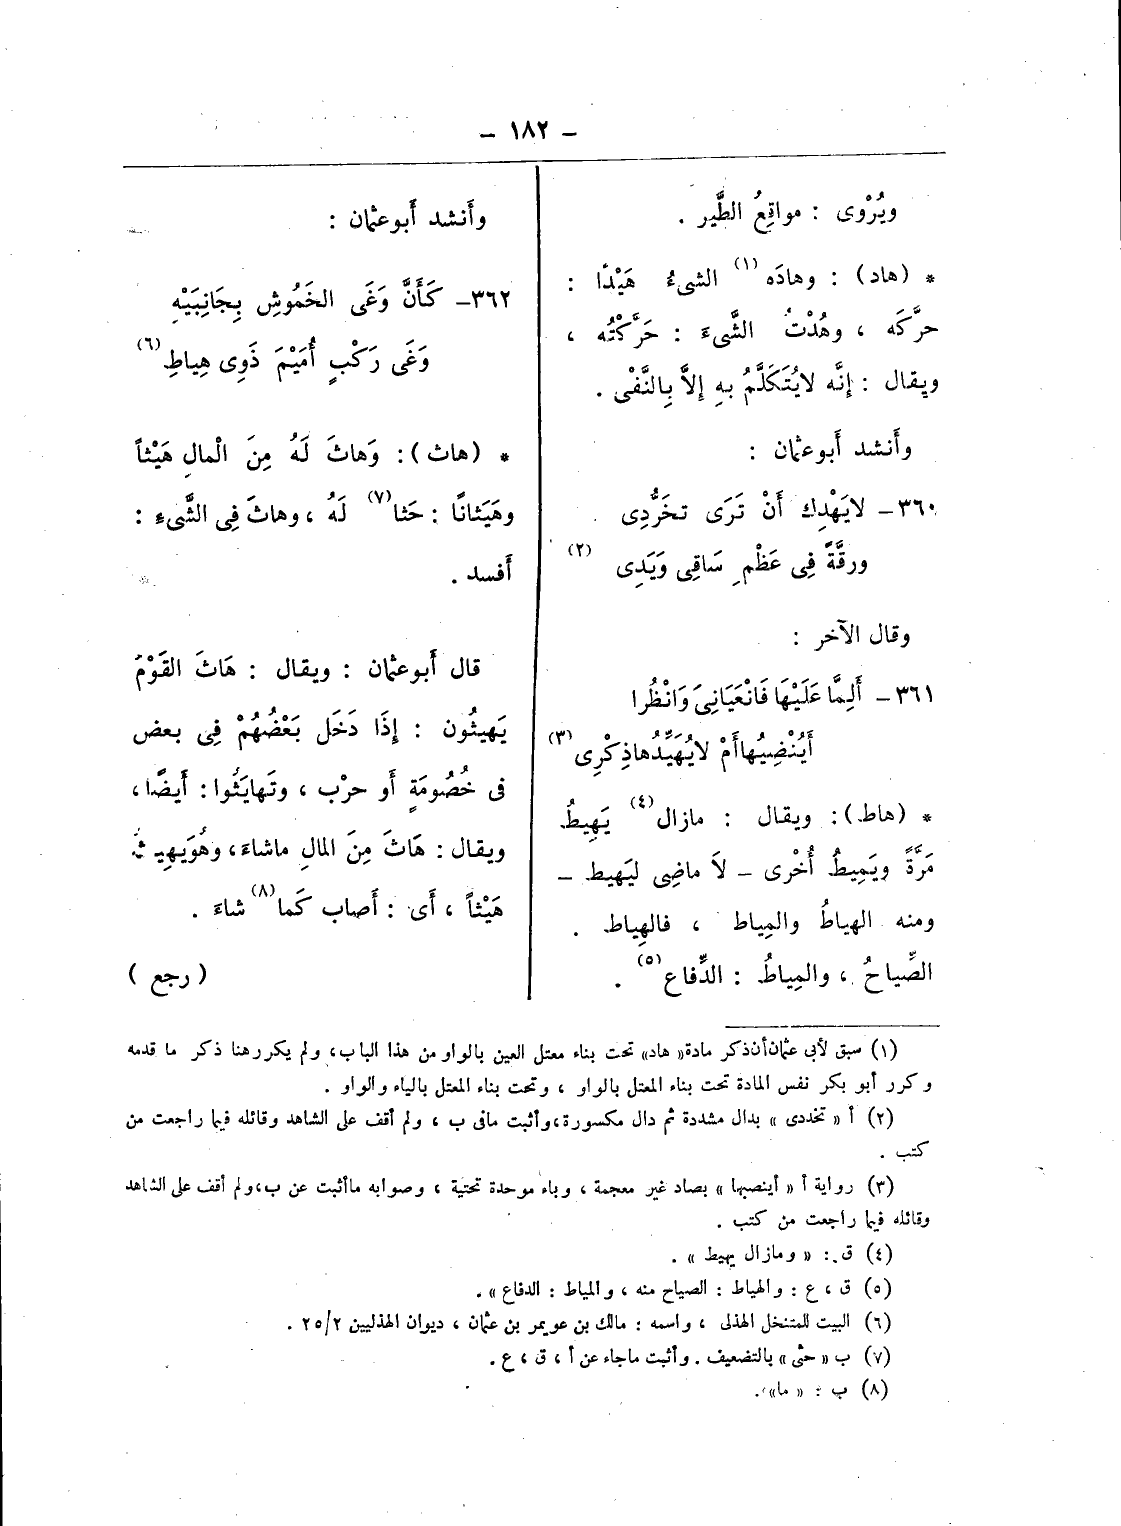 – ١٨٢ –
ويُرْوى : مواقِعُ الطَّير .
* (هاد) : وهادَه (١) الشىءُ هَيْدًا :
حرَّكَه ، وهُدْتُ الشَّىءَ : حَرَّكْتُه ،
ويقال : إنَّه لايُتَكَلَّمُ بهِ إلاَّ بِالنَّفْى .
وأَنشد أَبوعثمان :
٣٦٠– لايَهْدِك أَنْ تَرَى تخدُّدِى
ورقَّةً فِى عَظْمِ سَاقِى وَيَدِى (٢)
وقال الآخر :
٣٦١– أَلِمَّا عَلَيْهَا فَانْعَيَانِىَ وَانْظُرا
أَيُنْضِيُهاأَمْ لايُهَيِّدُهاذِكْرِى (٣)
* (هاط) : ويقال : مازال (٤) يَهِيطُ
مَرَّةً ويَمِيطُ أُخْرى – لاَ ماضِى ليَهيط –
ومنه الهِياطُ والمِياط ، فالهِياط .
الصِّياحُ ، والمِياطُ : الدِّفاع (٥) .
وأَنشد أَبوعثمان :
٣٦٢– كَأَنَّ وَغَى الخَمُوشِ بِجَانِبَيْهِ
وَغَى رَكْبٍ أُمَيْمَ ذَوِى هِياطِ (٦)
* (هاث) : وَهاثَ لَهُ مِنَ الْمالِ هَيْثاً
وهَيَثانًا : حَثا (٧) لَهُ ، وهاثَ فِى الشَّىءِ :
أَفسد .
قال أَبوعثمان : ويقال : هَاثَ القَوْمُ
يَهيثُون : إِذَا دَخَل بَعْضُهُمْ فِى بعض
فى خُصُومَةٍ أَو حرْب ، وتَهايَثُوا : أَيضًا ،
ويقال : هَاثَ مِنَ المالِ ماشاءَ ، وهُوَيَهِيثُ
هَيْثاً ، أَى : أَصاب كَما (٨) شاءَ .
( رجع )
(١) سبق لأبى عثمان أن ذكر مادة « هاد » تحت بناء معتل العين بالواو من هذا الباب ، ولم يكرر هنا ذكر ما قدمه
وكرر أبو بكر نفس المادة تحت بناء المعتل بالواو ، وتحت بناء المعتل بالياء والواو .
(٢) أ « تخددى » بدال مشددة ثم دال مكسورة ، وأثبت مافى ب ، ولم أقف على الشاهد وقائله فيما راجعت من
كتب .
(٣) رواية أ « أينصبها » بصاد غير معجمة ، وباء موحدة تحتية ، وصوابه ماأثبت عن ب ، ولم أقف على الشاهد
وقائله فيما راجعت من كتب .
(٤) ق : « ومازال يهيط » .
(٥) ق ، ع : والهياط : الصياح منه ، والمياط : الدفاع » .
(٦) البيت للمتنخل الهذلى ، واسمه : مالك بن عويمر بن عثمان ، ديوان الهذليين ٢/٢٥ .
(٧) ب « حثَّى » بالتضعيف . وأثبت ماجاء عن أ ، ق ، ع .
(٨) ب : « ما » .